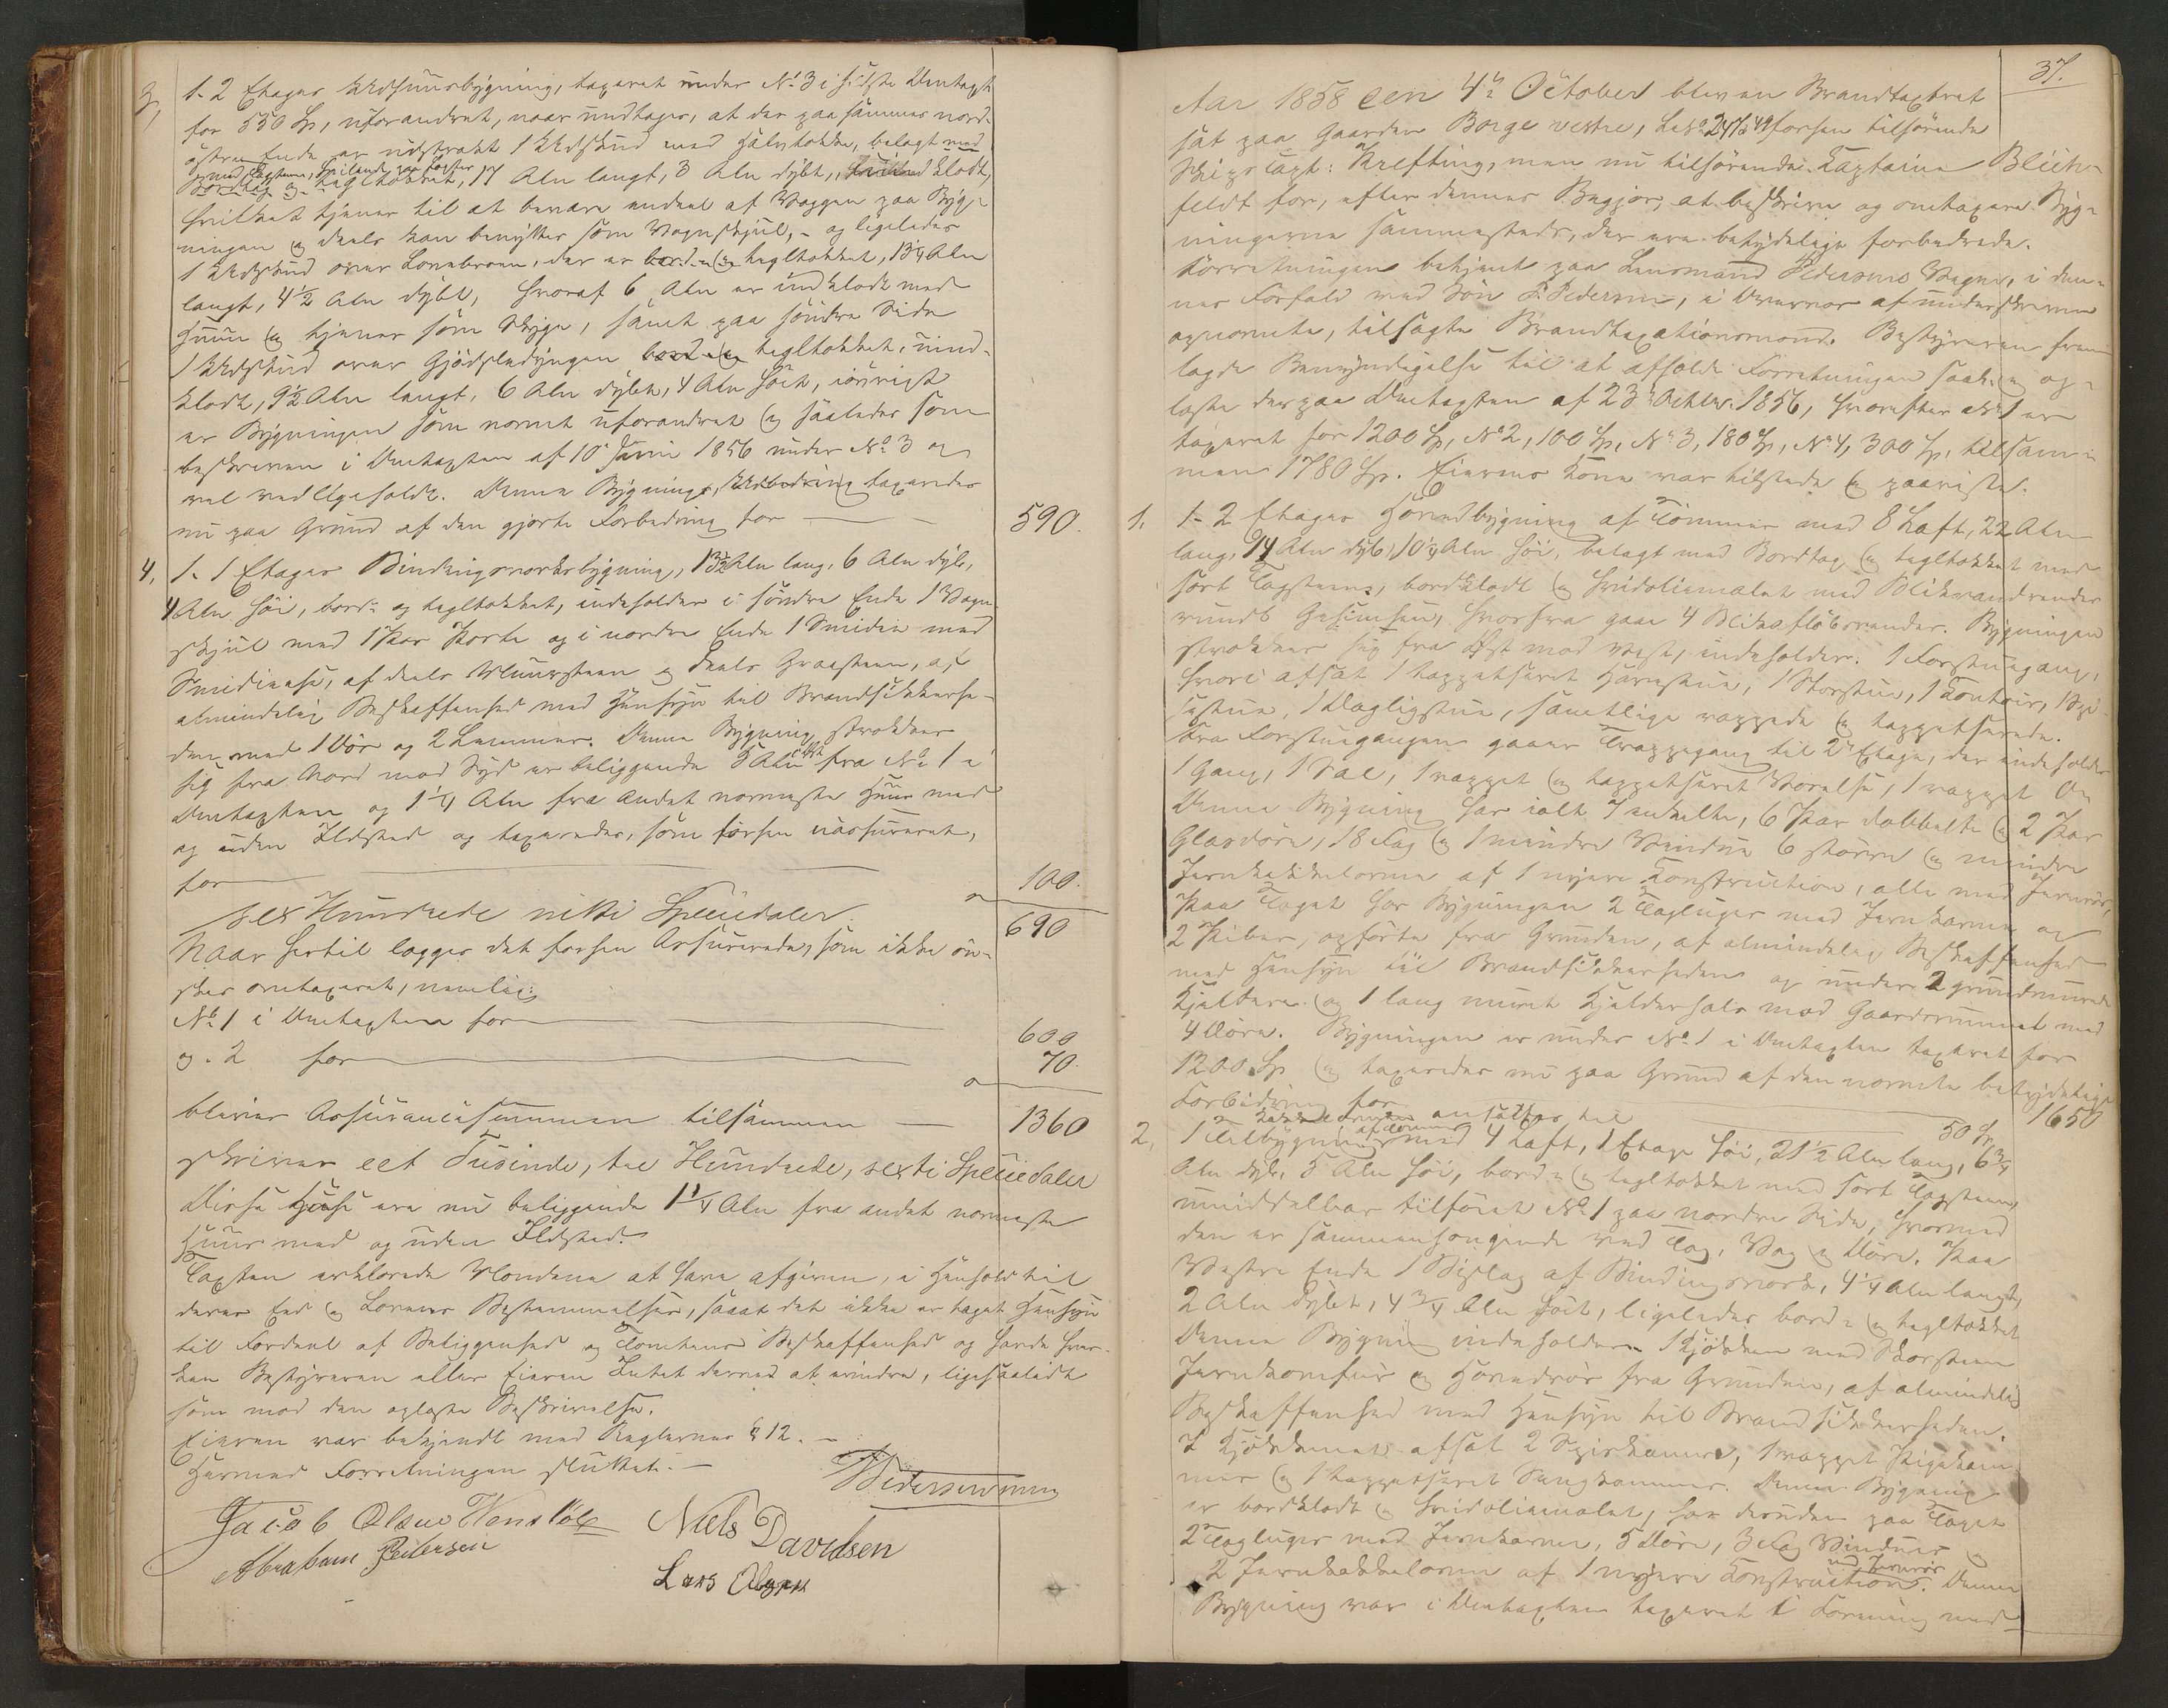 3, 1. 2 Etages Udhuusbygning, taxeret under No 3 i sidste Omtaxt
for 550 Sp, uforandret, naar undtages, at der paa sammes nord-
østre Ende er udstrakt 1 Udskud med Halvtække, belagt med
Bordtag og tegltækket, 17 Alen langt, 3 Alen dybt, klædt,
hvilket tjener til at bevare endeel af Væggen paa Byg-
ningen og deels kan benyttes som Vognskjul, - og ligeledes
1 Udskud over Laavebroen, der er bord- og tegltækket, 13 1/4 Alen
langt, 4 1/2 Alen dybt, hvoraf 6 Alen er indklædt med
Huun og tjener som Skyge, samt paa søndre Side
1 Udskud over Gjødseldyngen bord- og tegltækket, uind-
klædt, 9 1/2 Alen langt, 6 Alen dybt, 4 Alen høit, iøvrigt
er Bygningen som nævnt uforandret og saaledes som
beskreven i Omtaxten af 10 Juni 1856 under No 3 og
vel vedligeholdt. Denne Bygnings Udbedring taxeredes
nu paa Grund af den gjorte Forbedring for — 590.
4, 1. 1 Etages Bindingsværksbygning, 13 1/2 Alen lang, 6 Alen dyb,
4 Alen høi, bord- og tegltækket, indeholder i søndre Ende 1 Vogn-
skjul med 1 Par Porte og i nordre Ende 1 Smidie med
Smidieesse, af deels Muursteen og deels Graasteen, af
almindelig Beskaffenhed med Hensyn til Brandsikkerhe-
den, med 1 Dør og 2 Lemmer. Denne Bygning strækker
sig fra Nord mod Syd er beliggende 5 Alen fra No 1 i
Omtaxten og 1 1/4 Alen fra andet nærmeste Huus med
og uden Ildsted og taxeredes, som førhen uassureret,
for — 100.
sex Hundrede nitti Speciedaler. 690
Naar hertil lægges det forhen Assurerede, som ikke øn-
skes omtaxeret, nemlig:
No 1 i Omtaxten for — 600
og - 2 for — 70.
bliver Assurancesummen tilsammen — 1360
skriver eet Tusinde, tre Hundrede, sexti Speciedaler
Disse Huse ere nu beliggende 1 1/4 Alen fra andet nærmeste
Huus med og uden Ildsted.
Taxten erklærede Mændene at have afgiven, i Henhold til
deres Eed og Lovens Bestemmelser, saaat det ikke er taget Hensyn
til Fordeel af Beliggenhed og Tomtens Beskaffenhed og havde hver-
ken Bestyreren eller Eieren Intet derved at erindre, ligesaalidt
som mod den oplæste Beskrivelse.
Eieren var bekjendt med Reglernes § 12. -
Hermed Forretningen sluttet. -
Jacob Olsen Niels Davidsen
Abraham Pedersen Lars Olsen
37.
Aar 1858 den 4de October blev en Brandtaxtret
sat paa Gaarden Borge vestre, forhen tilhørende
Skibs Capt: Krefting, men nu tilhørende Captaine Blich-
feldt for, efter dennes Begjær, at beskrive og omtaxere Byg-
ningerne sammesteds, der ere betydelige forbedrede.
Forretningen betjent paa Lensmand Pedersens Vegne, i den-
nes Forfald ved Søn P. Pedersen, i Overvær af underskrevne
opnævnte, tilsagte Brandtaxationsmænd. Bestyreren frem-
lagde Bemyndigelse til at afholde Forretningen saale. og op-
læste derpaa Omtaxten af 23 Octbr. 1856, hvorefter No 1 er
taxeret for 1200 Sp, No 2, 100 Sp, No 3, 180 Sp, No 4, 300 Sp, tilsam-
men 1780 Sp. Eierens Kone var tilstede og paaviste.
1. 1. 2 Etages Hovedbygning af Tømmer med 8 Laft, 22 Alen
lang, 14 Alen dyb, 10 1/4 Alen høi, belagt med Bordtag og tegltækket med
sort Tagsteen, bordklædt og hvidoliemalet med Blikvandrender
rundt Gesimsen, hvorfra gaar 4 Blikafløbsrender. Bygningen
strækker sig fra Øst mod Vest, indeholder: 1 Forstuegang,
hvori afsat 1 tappetseret Havestue, 1 Storstue, 1 Kontoir, 1 Spi-
sestue, 1 Dagligstue, samtlige pappede og tappetserede.
Fra Forstuegangen gaaer Trappegang til 2den Etage, der indeholder
1 Gang, 1 Sal, 1 pappet og tappetseret Værelse, 1 pappet
Denne Bygning har ialt 7 enkelte, 6 Par dobbelte og 2 Par
Glasdøre, 18 Fag og 1 mindre Vindue 6 større og mindre
Jernkakkelovne af 1 nyere Konstruction, alle med Jernrør,
Paa Taget har Bygningen 2 Tagluger med Jernkarme og
2 Piber, opførte fra Grunden, af almindelig Beskaffenhed
med Hensyn til Brandsikkerheden og under 2 grundmurede
Kjældere og 1 lang muret Kjælderhals mod Gaardsrummet med
4 Døre. Bygningen er under No 1 i Omtaxten taxeret for
1200 Sp og taxeredes nu paa Grund af den nævnte betydelige
Forbedring for — 1650
ansættes til 50 Sp
2, 1 Tilbygning af Tømmer med 4 Laft, 1 Etage høi, 21 1/2 Alen lang, 6 3/4
Alen dyb, 5 Alen høi, bord- og tegltækket med sort Tagsteen,
umiddelbar tilføiet No 1 paa nordre Side, hvormed
den er sammenhængende ved Tag, Væg og Døre. Paa
Vestre Ende 1 Bislag af Bindingsværk, 4 1/4 Alen langt,
2 Alen dybt, 4 3/4 Alen høit, ligeledes bord- og tegltækket
Denne Bygning indeholder 1 Kjøkken med Skorsteen
Jernkomfur og Hovedrør fra Grunden, af almindelig
Beskaffenhed med Hensyn til Brandsikkerheden.
I Kjøkkenet afsat 2 Spiskamre, 1 pappet Pigekam-
mer og 1 tappetseret Sengkammer. Denne Bygning
er bordklædt og hvidoliemalet, har desuden paa Taget
2 Tagluger med Jernkarme, 5 Døre, 3 Fag Vinduer og
2 Jernkakkelovne af 1 nyere Construction med Jernrør. Denne
Bygning var i Omtaxten taxeret i Forening med